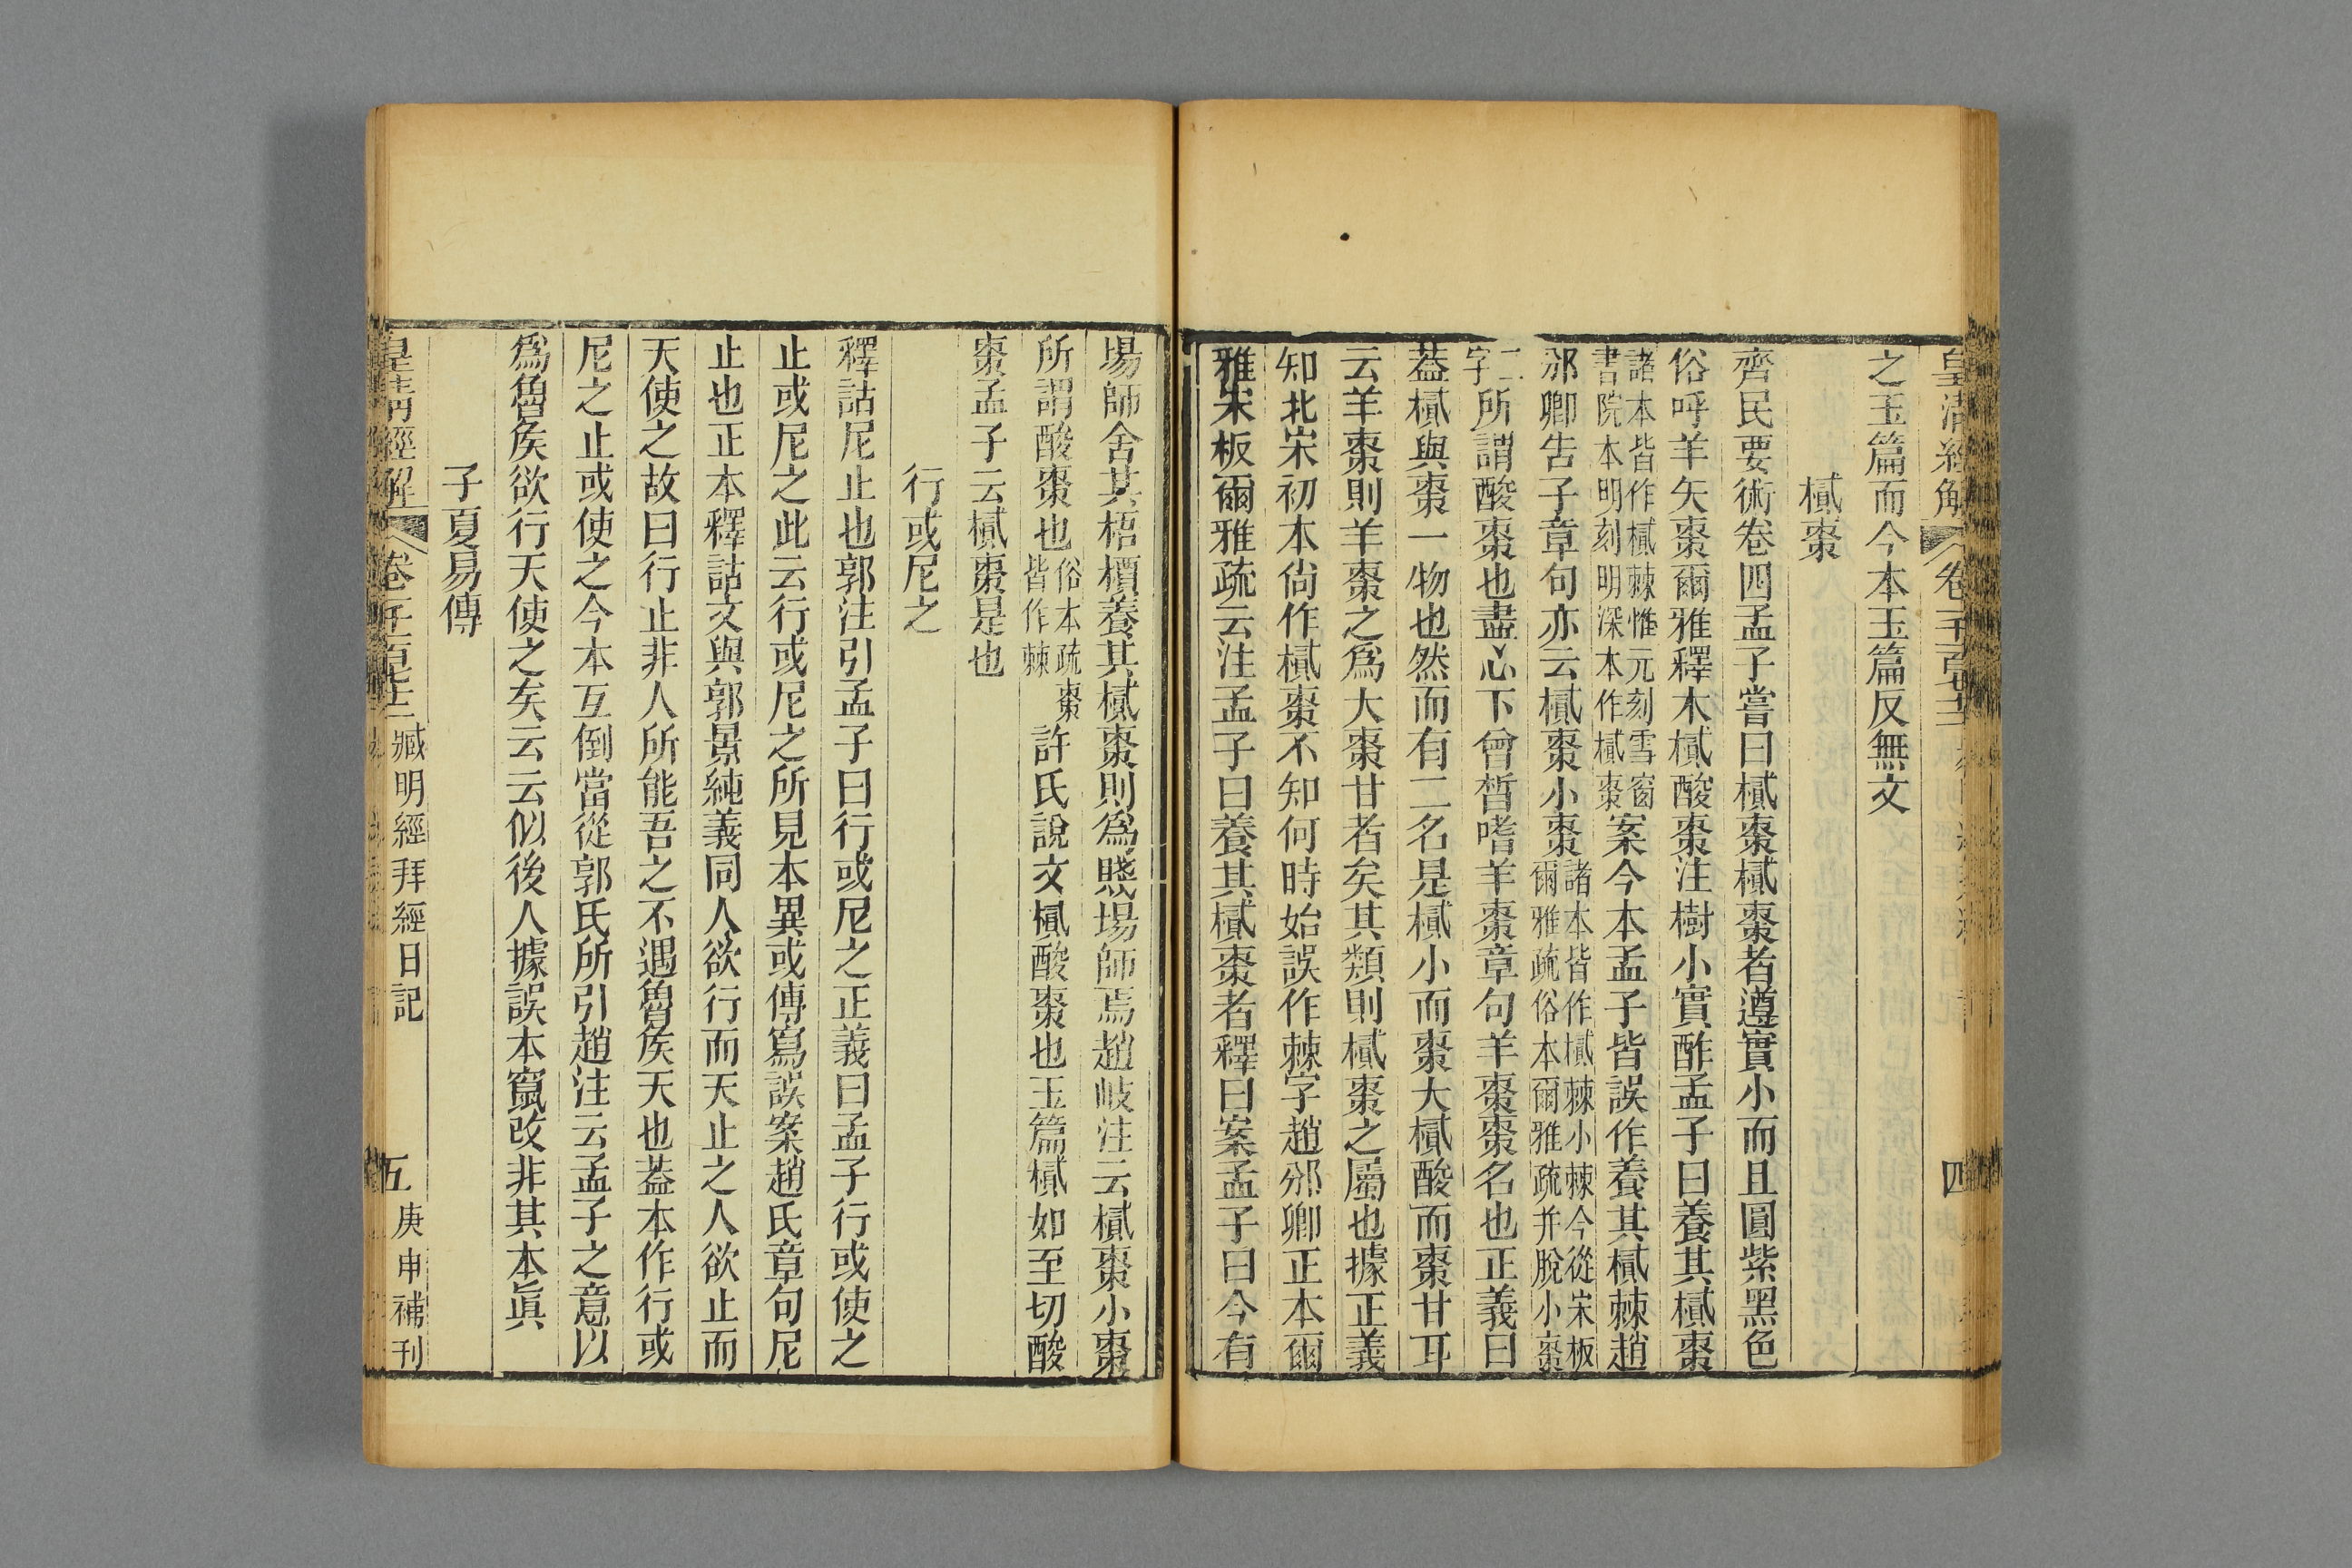 皇清經解
四
之玉篇而今本玉篇反無文
樲棗
齊民要術卷四孟子嘗曰樲棗樲棗者遵實小而且圓紫黑色
俗呼羊矢棗爾雅釋木樲酸棗注樹小實酢孟子曰養其樲棗
諸本皆作樲棘惟元刻雪窗
書院本明刻明深本作樲棗
案今本孟子皆誤作養其樲棘趙
邠卿告子章句亦云樲棗小棗
諸本皆作樲棘小棘今從宋板
爾雅疏俗本爾雅疏并脫小棗
二
字
所謂酸棗也盡心下曾晳嗜羊棗章句羊棗棗名也正義曰
葢樲與棗一物也然而有二名是樲小而棗大樲酸而棗甘耳
云羊棗則羊棗之爲大棗甘者矣其類則樲棗之屬也據正義
知北宋初本尙作樲棗不知何時始誤作棘字趙邠卿正本爾
雅宋板爾雅疏云注孟子曰養其樲棗者釋曰案孟子曰今有
場師舍其梧檟養其樲棗則爲賤場師焉趙岐注云樲棗小棗
所謂酸棗也
俗本疏棗
皆作棘
許氏說文樲酸棗也玉篇樲如至切酸
棗孟子云樲棗是也
行或尼之
釋詁尼止也郭注引孟子曰行或尼之正義曰孟子行或使之
止或尼之此云行或尼之所見本異或傳寫誤案趙氏章句尼
止也正本釋詁文與郭景純義同人欲行而天止之人欲止而
天使之故曰行止非人所能吾之不遇魯矦天也葢本作行或
尼之止或使之今本互倒當從郭氏所引趙注云孟子之意以
爲魯矦欲行天使之矣云云似後人據誤本竄改非其本眞
子夏易傳
皇清經解
臧明經拜經日記
五
庚申補刊